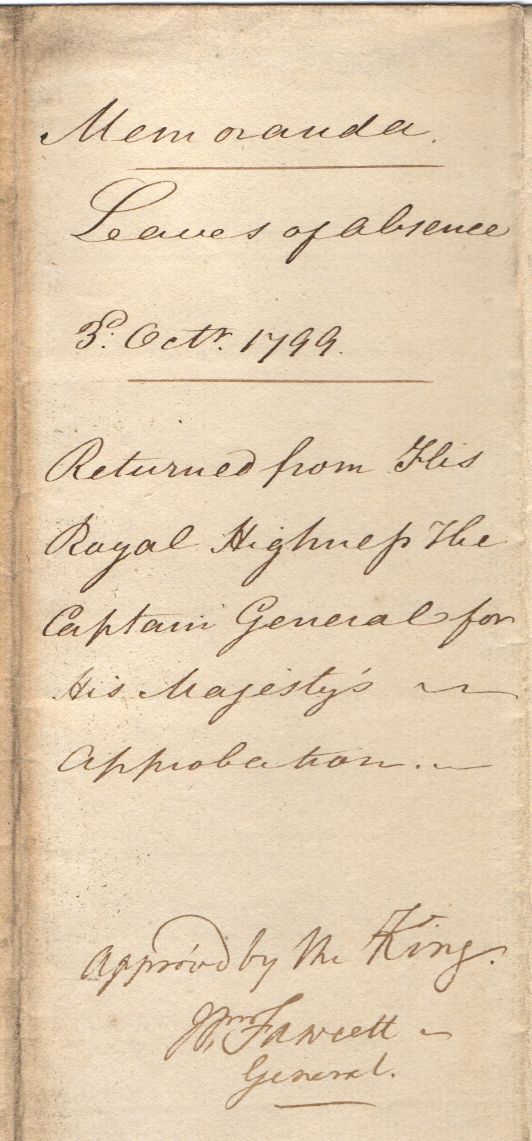 Memoranda.
Leaves of absence
3d. Octr. 1799.
Returned from His
Royal Highneſs The
Captain General for
His Majesty's
Approbation.
Approv'd by the King.
Wm. Fawcett
General.